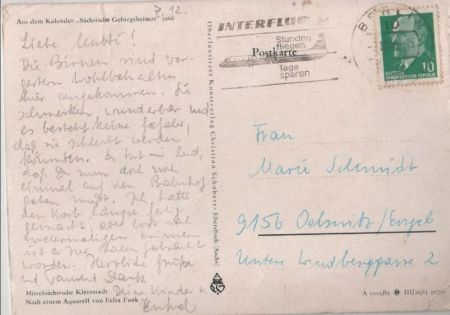 Aus dem Kalender „Sächsische Gebirgsheimat" 1966
7.12.
Liebe Mutti!
Die Birnen sind vor-
gestern wohlbehalten
hier angekommen. Sie
schmecken wunderbar und
es besteht keine Gefahr,
daß sie schlecht werden
könnten. Es tut mir leid,
daß Du nun doch noch
einmal auf den Bahnhof
gehen mußt. Ich hatte
den Korb längst fertig
gemacht, aber
ist er zur Bahn gebracht
worden. Herzliche Grüße
und Dank
Deine Kinder u.
Enkel
Mittelsächsische Kleinstadt
Nach einem Aquarell von Felix Funk
Oberlausitzer Kunstverlag Christian Schubert, Ebersbach (Sachs)
INTERFLUG
Stunden
fliegen
Tage
sparen
Postkarte
BERL
DEUTSCHE
DEMOKRATISCHE REPUBLIK
10
Frau
Marie Schmidt
9156 Oelsnitz/Erzgeb.
Untere Lindbergpasse 2
A 1002/65 III/26/13